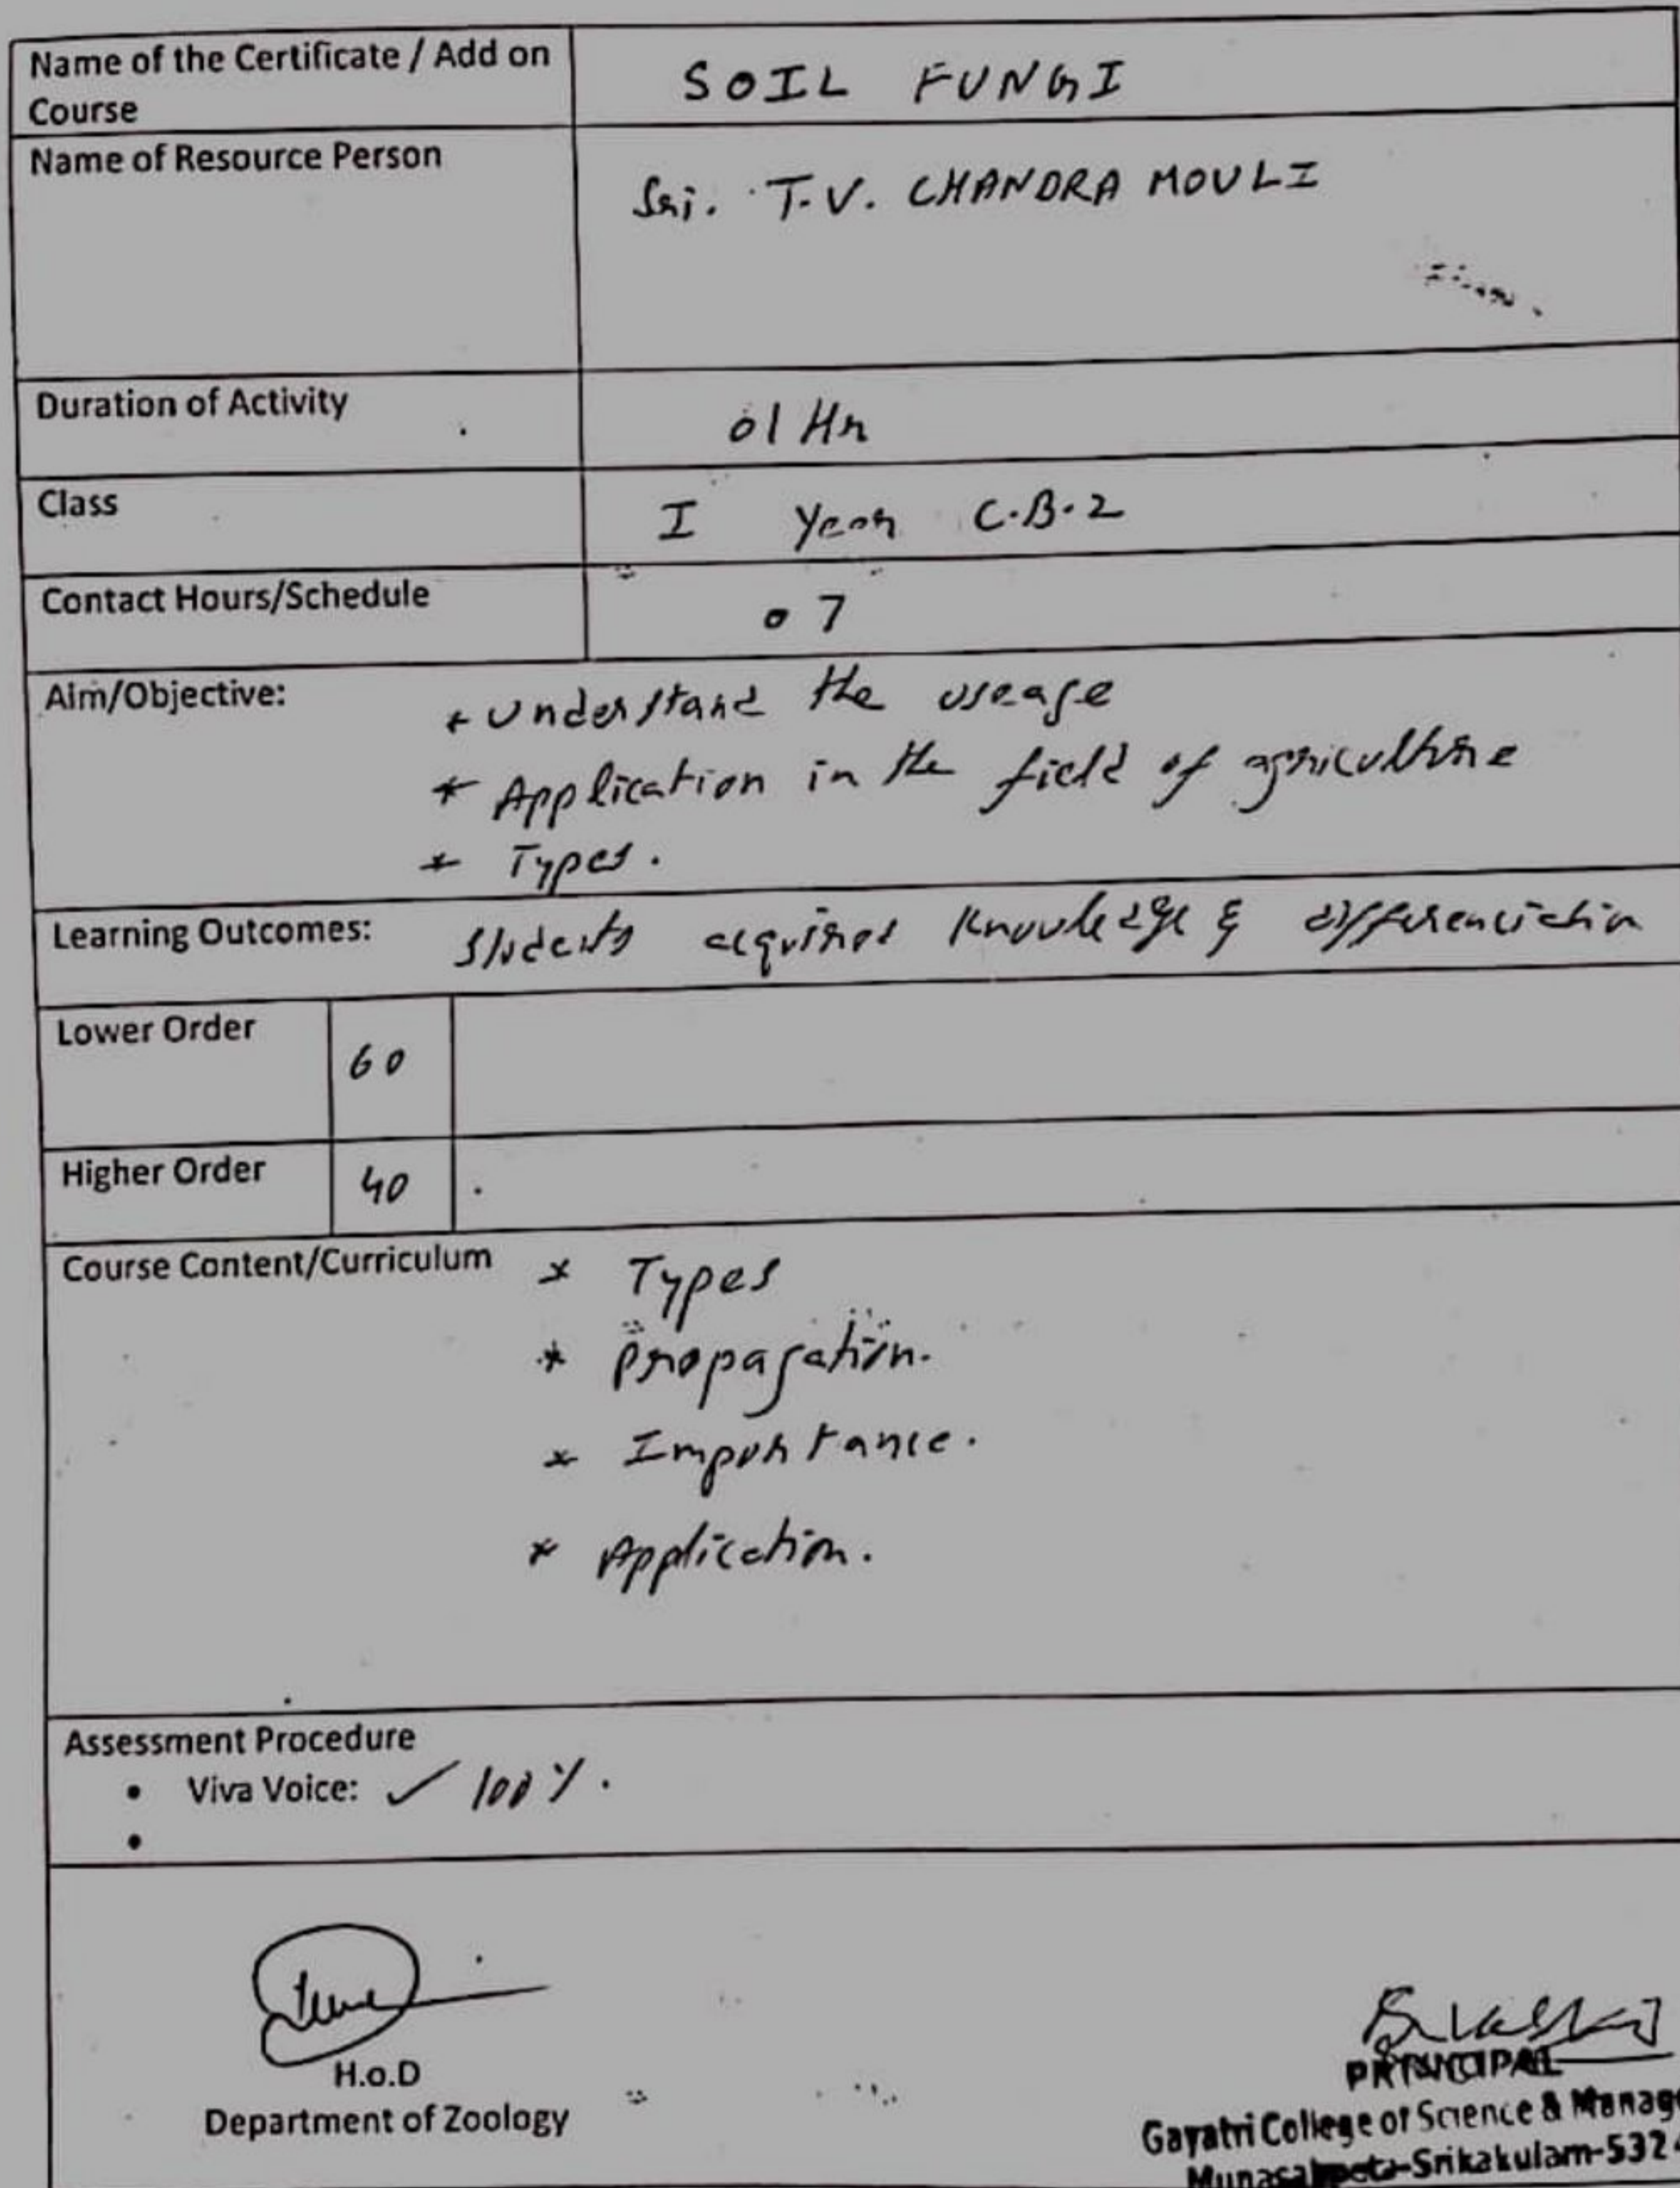 Name of the Certificate / Add on
Course
SOIL FUNGI
Name of Resource Person
Sri. T.V. CHANDRA MOULI
Duration of Activity
01 Hr
Class
I Year C.B.Z
Contact Hours/Schedule
07
Aim/Objective:
* Understand the useage
* Application in the field of agriculture
* Types.
Learning Outcomes: Students acquires knowledge & differenciation
Lower Order
60
Higher Order
40
Course Content/Curriculum
* Types
* Propagation.
* Importance.
* Application.
Assessment Procedure
• Viva Voice: ✓ 100%.
•
H.o.D
Department of Zoology
PRINCIPAL
Gayatri College of Science & Manag
Srikakulam-532